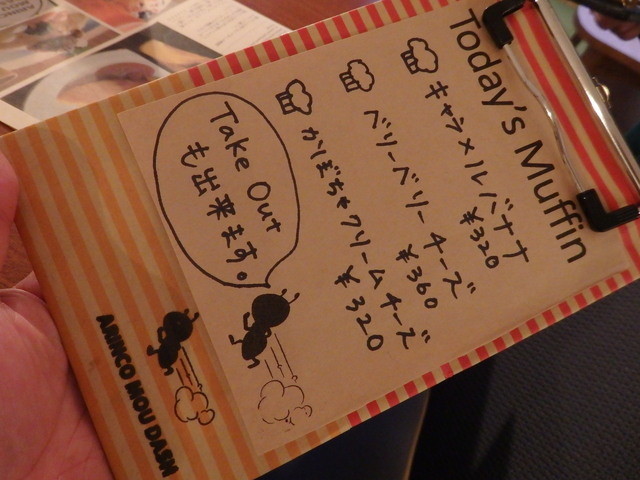 Today's Muffin
キャラメルバナナ
¥320
ベリーベリーチーズ
¥360
かぼちゃクリームチーズ
¥320
Take Out
も出来ます。
ARINCO MOU DASH